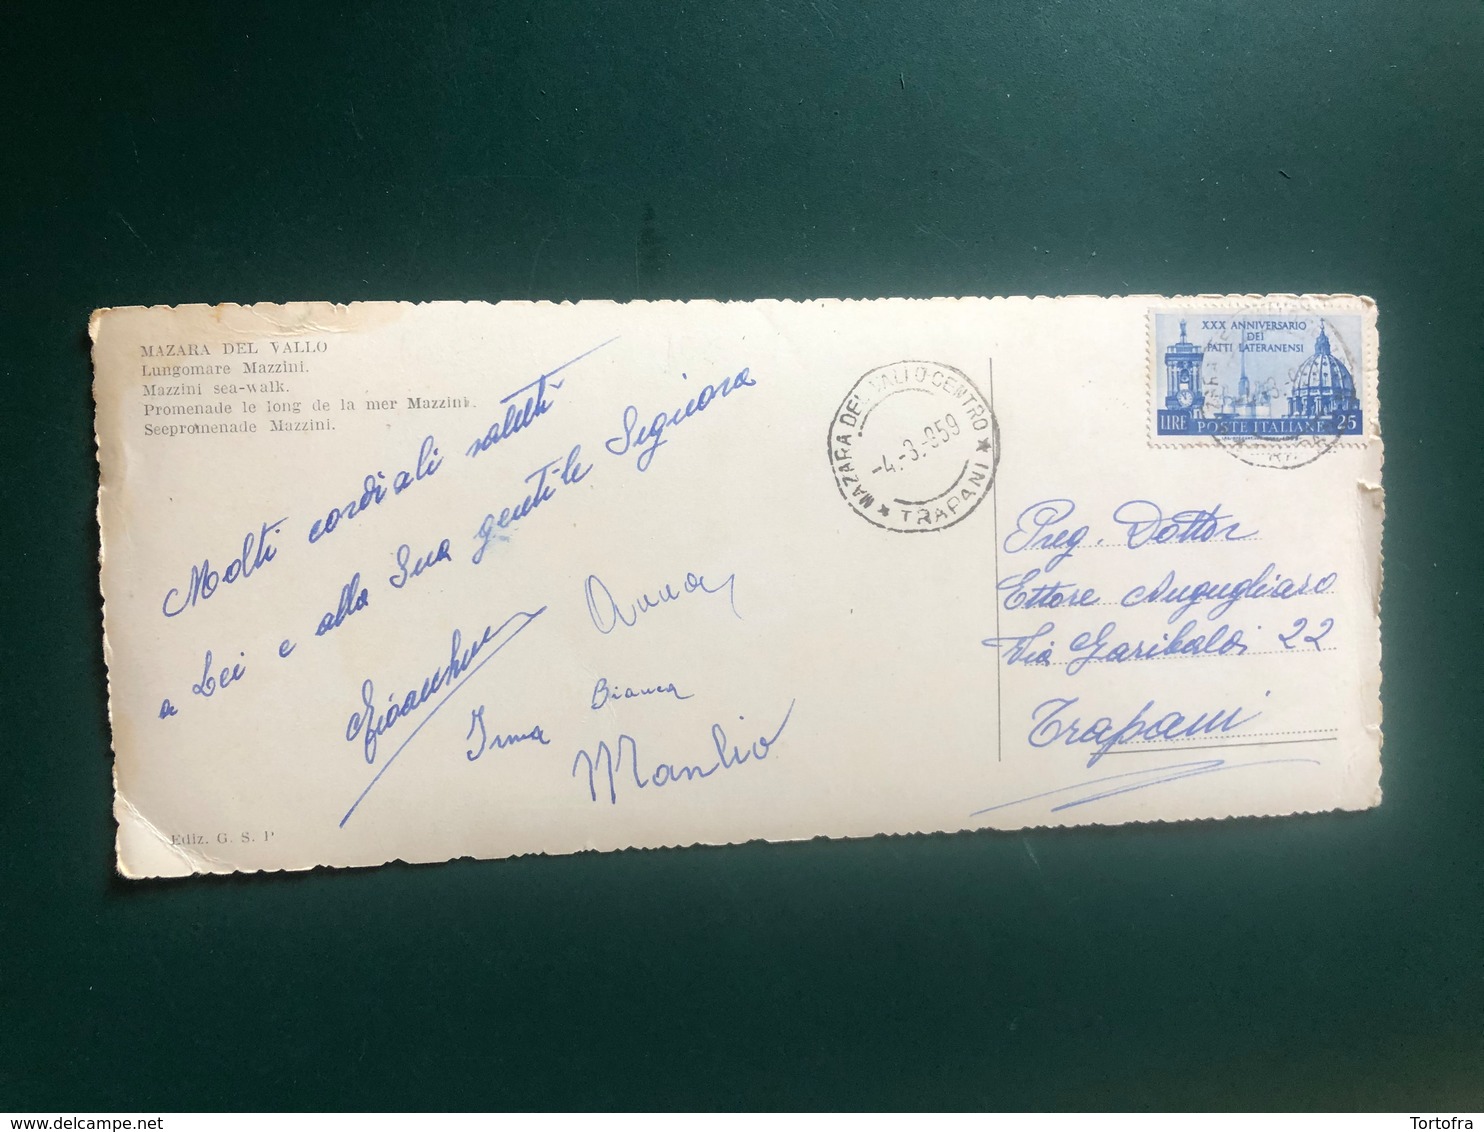 MAZARA DEL VALLO
Lungomare Mazzini.
Mazzini sea-walk.
Promenade le long de la mer Mazzini.
Seepromenade Mazzini.
Molti cordiali saluti
a Lei e alla Sua gentile Signora
Anna
Irma
Bianca
Manlio
Ediz. G. S. P
MAZARA DEL VALLO CENTRO
-4.-3.-959
* TRAPANI *
XXX ANNIVERSARIO
DEI
PATTI LATERANENSI
LIRE POSTE ITALIANE 25
Preg. Dottor
Ettore Augugliaro
Via Garibaldi 22
Trapani
delcampe.net
Tortofra